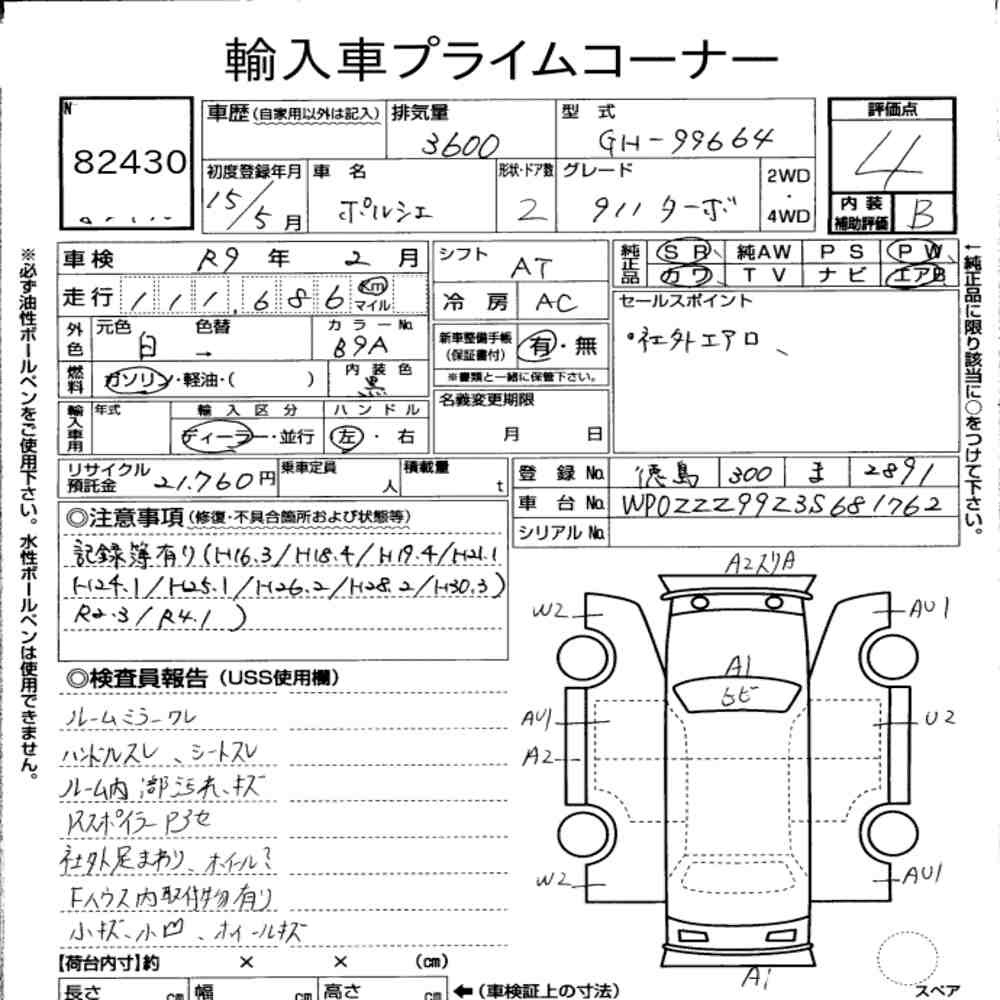 輸入車プライムコーナー
N
82430
車歴 (自家用以外は記入)
排気量 3600
型式 GH-99664
評価点 4
初度登録年月 15/5月
車名 ポルシェ
形状・ドア数 2
グレード 911 ターボ
2WD・4WD
内装補助評価 B
車検 R9年 2月
シフト AT
純正品 SR 純AW PS PW
カワ TV ナビ エアB
走行 111,686 Km マイル
冷房 AC
セールスポイント
・社外エアロ、
外色 元色 白 色替 → カラーNo. B9A
新車整備手帳(保証書付) 有・無
※書類と一緒に保管下さい。
燃料 ガソリン・軽油・( )
内装色 黒
名義変更期限 月 日
輸入車用 年式 輸入区分 ディーラー・並行 ハンドル 左・右
リサイクル預託金 21.760円
乗車定員 人
積載量 t
登録No. 徳島 300 ま 2891
車台No. WP0ZZZ99Z3S681762
シリアルNo.
◎注意事項(修復・不具合箇所および状態等)
記録簿有り(H16.3/H18.4/H19.4/H21.1
H24.1/H25.1/H26.2/H28.2/H30.3)
R2.3/R4.1)
◎検査員報告(USS使用欄)
ルームミラーワレ
ハンドルスレ、シートスレ
ルーム内 部汚れ、キズ
Rスポイラー
社外足まわり、ホイール?
Fハウス内取付物有り
小キズ、小凹、ホイールキズ
【荷台内寸】約 × × (cm)
長さ cm 幅 cm 高さ cm
←(車検証上の寸法)
A2スリA
W2
AU1
A1
トビ
AU1
U2
A2
W2
AU1
A1
スペア
※必ず油性ボールペンをご使用下さい。水性ボールペンは使用できません。
←純正品に限り該当に○をつけて下さい。